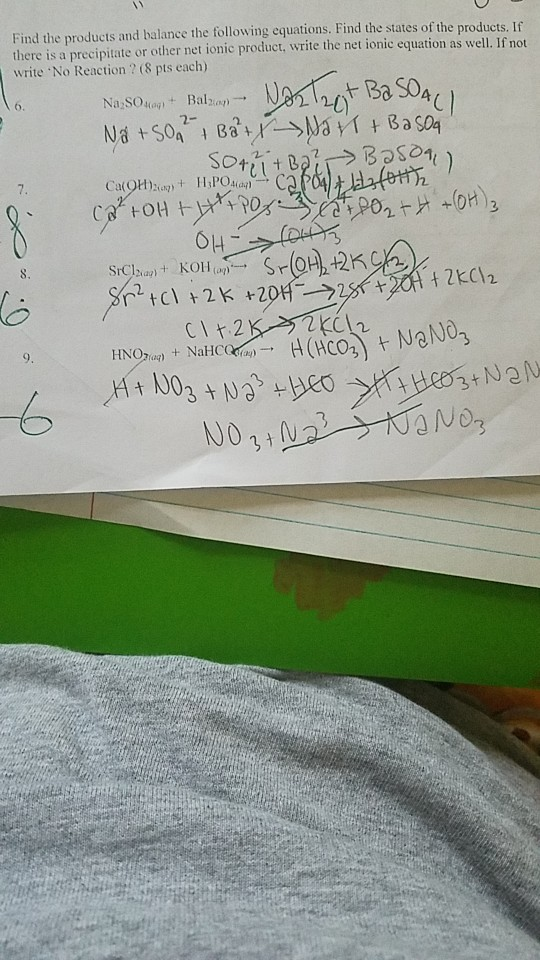 Find the products and balance the following equations. Find the states of the products. If
there is a precipitate or other net ionic product, write the net ionic equation as well. If not
write 'No Reaction'? (8 pts each)
6. Na₂SO₄(aq) + BaI₂(aq) → Na₂I₂ + BaSO₄
Na + SO₄²⁻ + Ba² + I → Na + I + BaSO₄
SO₄²⁻ + Ba² → BaSO₄
7. Ca(OH)₂(aq) + H₃PO₄(aq) → Ca(PO₄) + H₃(OH)₂
Ca² + OH + H⁺ + PO₃ → Ca² + PO₂ + H + (OH)₃
OH⁻ → (OH)₃
8.
8. SrCl₂(aq) + KOH(aq) → Sr(OH)₂ + 2KCl₂
6
Sr² + Cl + 2K + 2OH⁻ → 2Sr + 2OH + 2KCl₂
Cl + 2K → 2KCl₂
9. HNO₃(aq) + NaHCO₃(aq) → H(HCO₃) + NaNO₃
H + NO₃ + Na³ + HCO → H + HCO₃ + NaN
-6
NO₃ + Na³ → NaNO₃